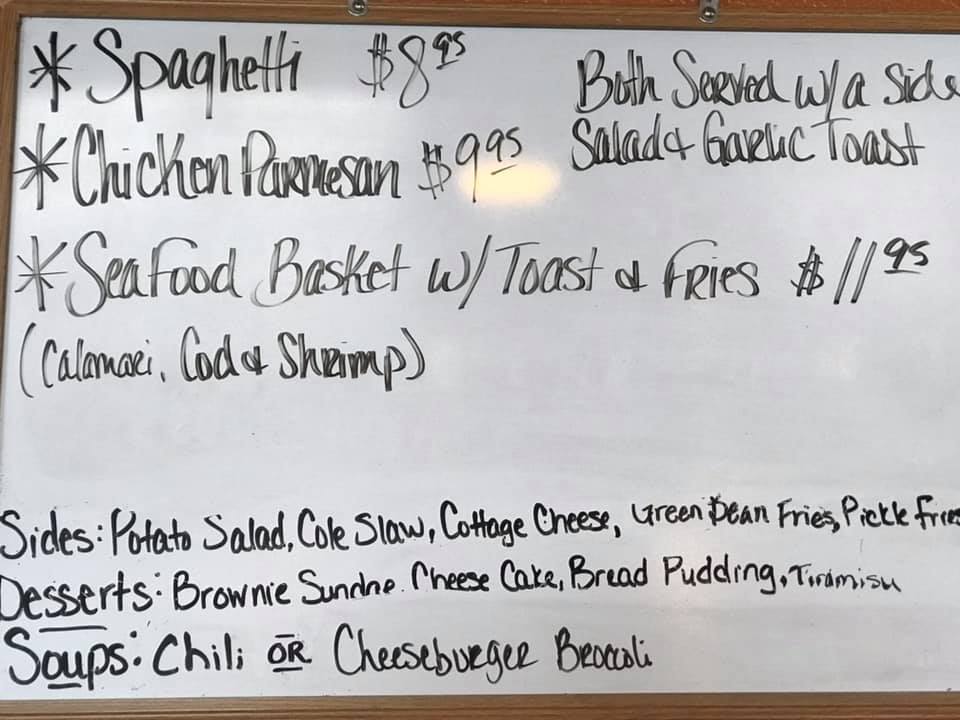 * Spaghetti $8.95
Both Served w/a Side
Salad & Garlic Toast
* Chicken Parmesan $9.95
* Seafood Basket w/ Toast & Fries $11.95
(Calamari, Cod & Shrimp)
Sides: Potato Salad, Cole Slaw, Cottage Cheese, Green Bean Fries, Pickle fries
Desserts: Brownie Sundae. Cheese Cake, Bread Pudding, Tiramisu
Soups: Chili OR Cheeseburger Broccoli